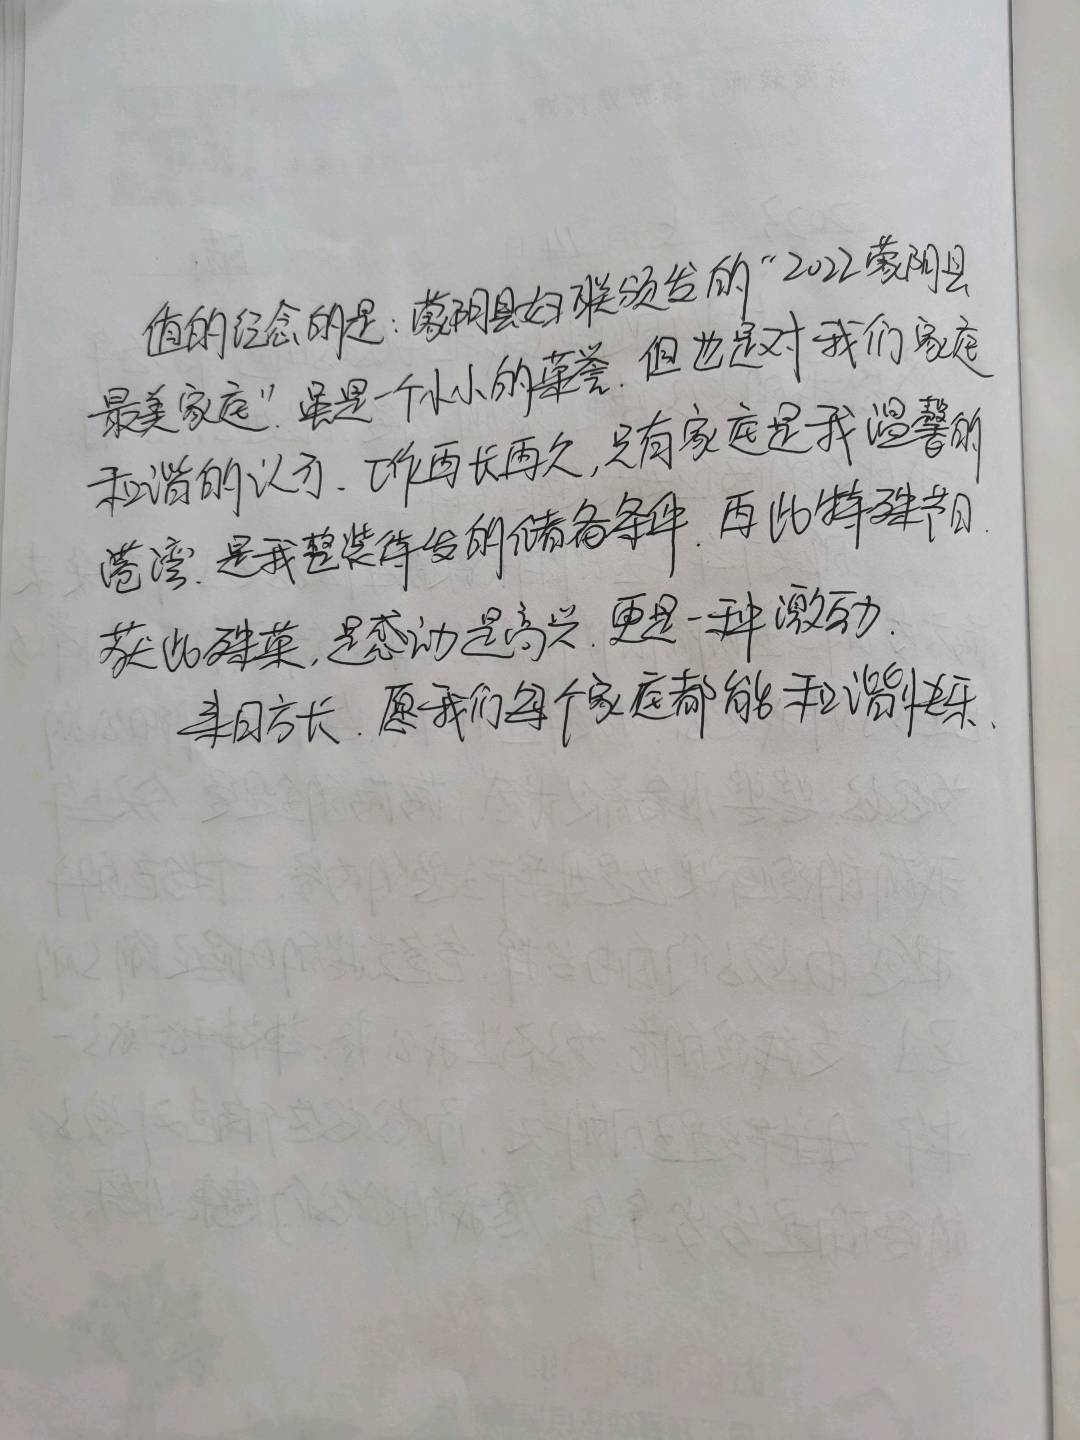 值的纪念的是：蒙阴县妇联颁发的“2022蒙阴县
最美家庭”.虽是一个小小的荣誉.但也是对我们家庭
和谐的认可.工作再长再久,只有家庭是我温馨的
港湾.是我整装待发的储备条件.再此特殊节日.
获此殊荣,是感动是高兴.更是一种激动.
来日方长.愿我们每个家庭都能和谐快乐.